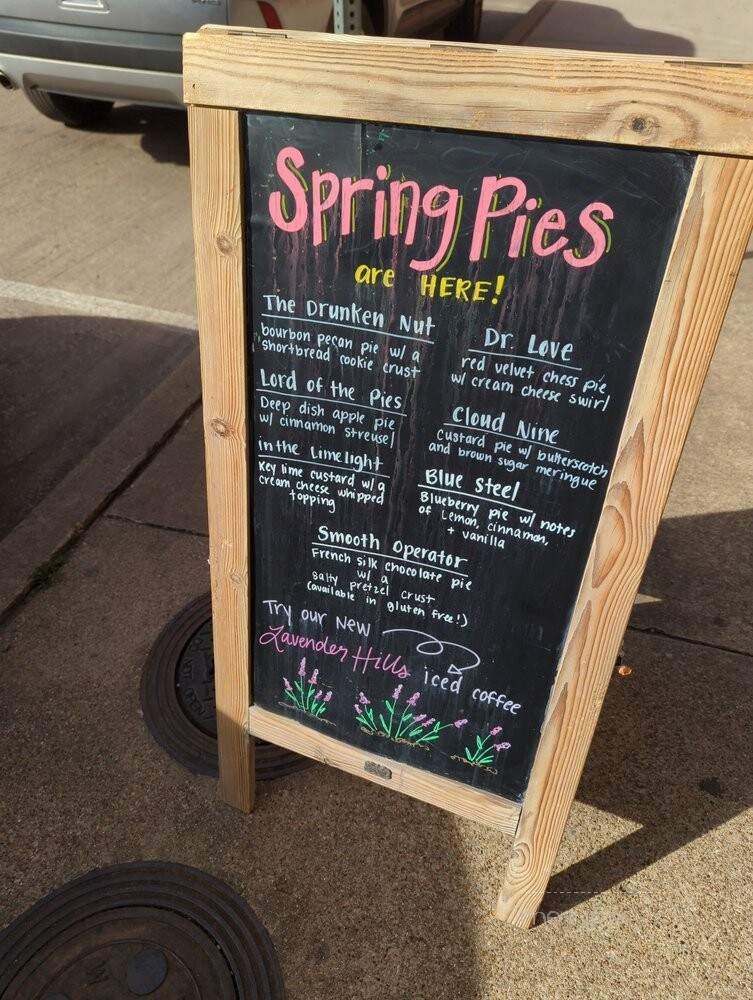 Spring Pies
are HERE!
The Drunken Nut
bourbon pecan pie w/ a
shortbread cookie crust
Lord of the Pies
Deep dish apple pie
w/ cinnamon streusel
in the Limelight
Key lime custard w/ a
cream cheese whipped
topping
Dr. Love
red velvet chess pie
w/ cream cheese swirl
Cloud Nine
Custard pie w/ butterscotch
and brown sugar meringue
Blue Steel
Blueberry pie w/ notes
of Lemon, cinnamon,
+ vanilla
Smooth Operator
French silk chocolate pie
w/ a
salty pretzel crust
(available in gluten free!)
Try our New
Lavender Hills
iced coffee